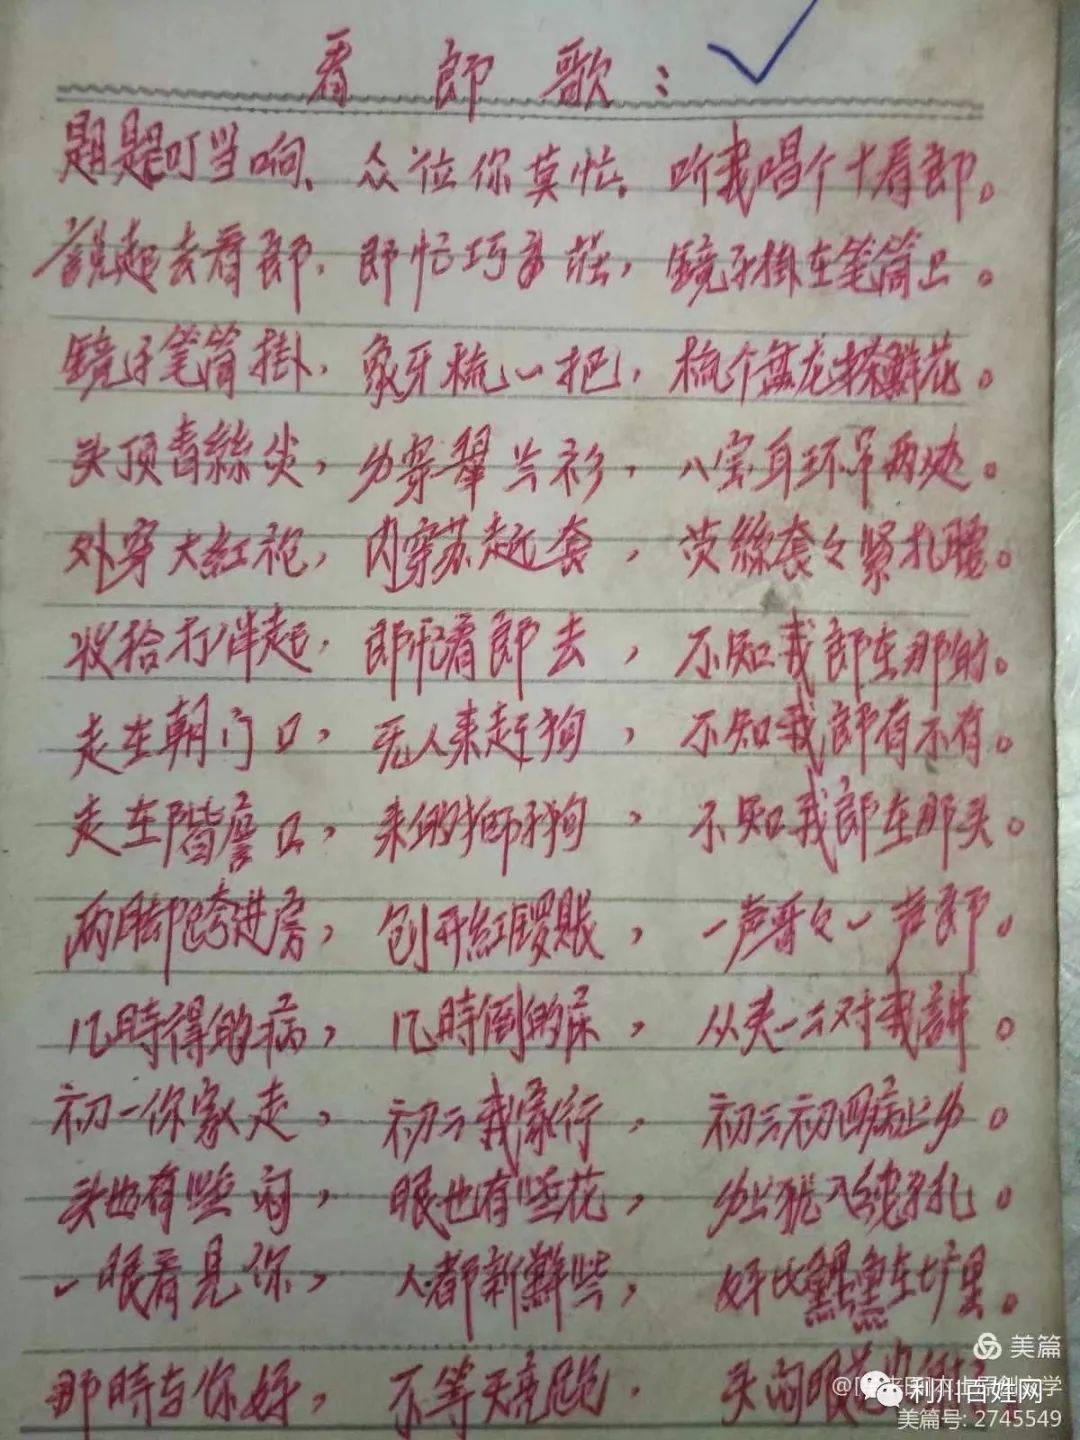 看郎歌：
是是叮当响、众位你莫忙。听我唱个十看郎。
说起去看郎，即忙巧,庄，镜子掛在笔筒上。
镜子笔筒掛，象牙梳一把，梳个盘龙插鲜花。
头顶青絲尖，身穿翠兰衫，八宝耳环吊两边。
外穿大紅袍，内穿苏赶套，荧絲套々紧扎腰。
收拾打伴起，即忙看郎去，不知我郎在那的。
走在朝门口，无人来赶狗，不知我郎有不有。
走在階簷口，来的狮子狗，不知我郎在那头。
两脚跨进房，刨开紅幔账，一声哥々一声郎。
几時得的病，几時倒的床，从头一二对我講。
初一你家走，初二我家行，初三初四病上身。
头也有些闷，眼也有些花，身上犹入绳子扎。
一眼看見你，人都新鮮些，好比鯉魚在圹里。
那時与你好，不等天亮跑，头闷眼花
美篇
利川百姓网
美篇号: 2745549